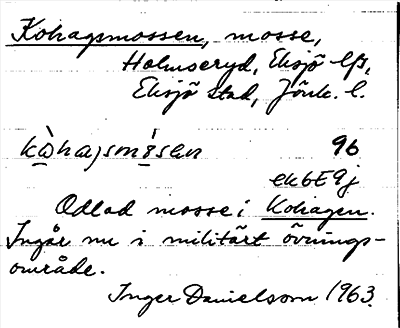 Kohagsmossen, mosse,
Holmseryd, Eksjö lfs,
Eksjö stad, Jönk. l.
kò̱hajsmó̱sen 96
ek6E9j
Odlad mosse i Kohagen.
Ingår nu i militärt övnings-
område.
Inger Danielsson 1963.